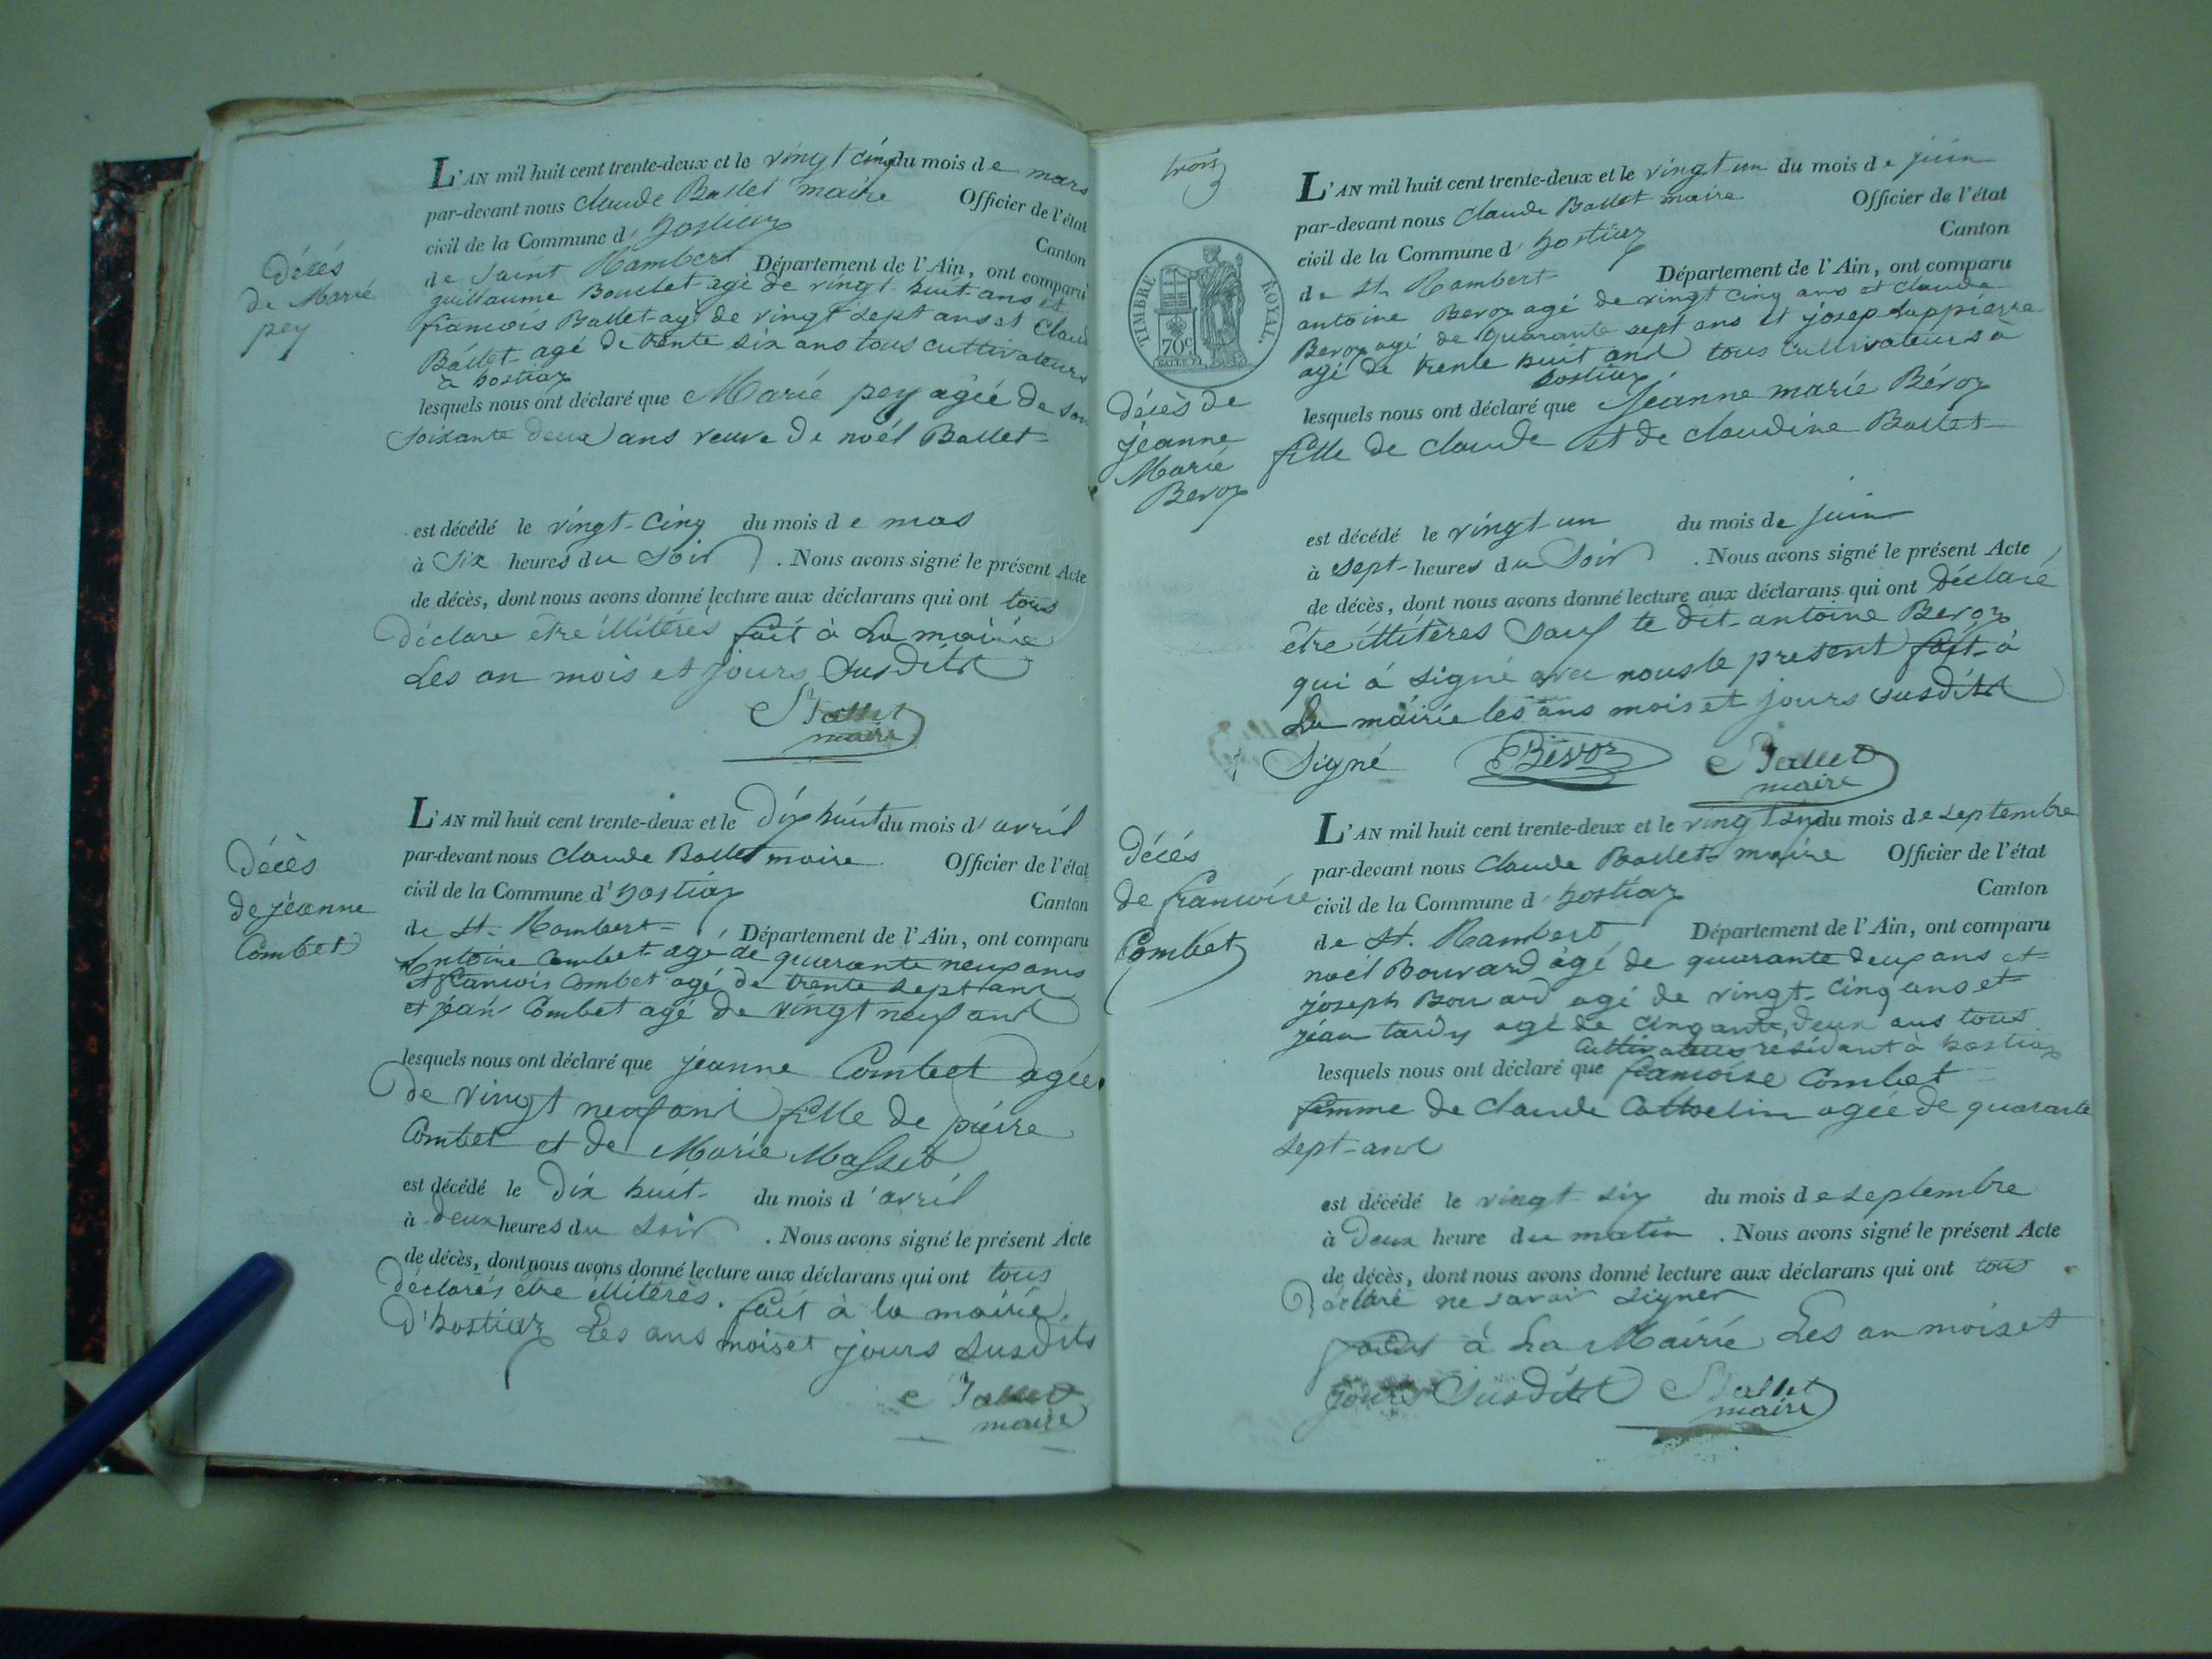 décès
de Marie
pey
L'AN mil huit cent trente-deux et le vingt cinq du mois de mars
par-devant nous Claude Ballet maire Officier de l'état
civil de la Commune d'hostiaz Canton
de Saint Rambert Département de l'Ain, ont comparu
guillaume Bouchet agé de vingt huit ans et
francois Ballet agé de vingt sept ans et Claude
Ballet agé de trente six ans tous cultivateurs
a hostiaz
lesquels nous ont déclaré que Marie pey agée de
soixante deux ans veuve de noél Ballet
est décédé le vingt-cinq du mois de mas
à six heures du soir. Nous avons signé le présent Acte
de décès, dont nous avons donné lecture aux déclarans qui ont tous
déclare etre illiterés fait à La mairie
Les an mois et jours susdits
Ballet
maire
décès
de jéanne
Combet
L'AN mil huit cent trente-deux et le dix huit du mois d'avril
par-devant nous Claude Ballet maire Officier de l'état
civil de la Commune d'hostiaz Canton
de St. Rambert Département de l'Ain, ont comparu
Antoine Combet agé de quarante neuf ans
et francois Combet agé de trente sept ans
et jéan Combet agé de vingt neuf ans
lesquels nous ont déclaré que jéanne Combet agée
de vingt neuf ans fille de piéire
Combet et de Marie Massed
est décédé le dix huit du mois d'avril
à deux heures du soir. Nous avons signé le présent Acte
de décès, dont nous avons donné lecture aux déclarans qui ont tous
déclarés être illiterés. fait à la mairie
d'hostiaz Les ans mois et jours susdits
Ballet
maire
trois
TIMBRE ROYAL.
70c
décès de
jéanne
Marie
Beroz
L'AN mil huit cent trente-deux et le vingt-un du mois de juin
par-devant nous Claude Ballet maire Officier de l'état
civil de la Commune d'hostiaz Canton
de St. Rambert Département de l'Ain, ont comparu
antoine Beroz agé de vingt cinq ans et Claude
Beroz agé de quarante sept ans et josep Lappierre
agé de trente huit ans tous cultivateurs à
hostiaz
lesquels nous ont déclaré que jéanne marie Béroz
fille de claude et de claudine Ballet
est décédé le vingt-un du mois de juin
à sept heures du soir. Nous avons signé le présent Acte
de décès, dont nous avons donné lecture aux déclarans qui ont déclaré
être illitères sauf le dit antoine Beroz
qui à signé avec nous le present fait à
La mairie les ans mois et jours susdits
Signé Béroz Ballet
maire
décés
de francoise
Combet
L'AN mil huit cent trente-deux et le vingt six du mois de septembre
par-devant nous Claude Ballet maire Officier de l'état
civil de la Commune d'hostiaz Canton
de St. Rambert Département de l'Ain, ont comparu
noél Bouvard àgé de quarante deux ans et
joseph Bouvard agé de vingt-cinq ans et
jéan tardy agé de cinqante deux ans tous
cultivateurs résidant à hostiaz
lesquels nous ont déclaré que francoise Combet
femme de Claude agée de quarante
sept-ans
est décédé le vingt six du mois de septembre
à deux heure du matin. Nous avons signé le présent Acte
de décès, dont nous avons donné lecture aux déclarans qui ont tous
déclaré ne savoir signer
à La Mairie Les an mois et
jours susdits Ballet
maire